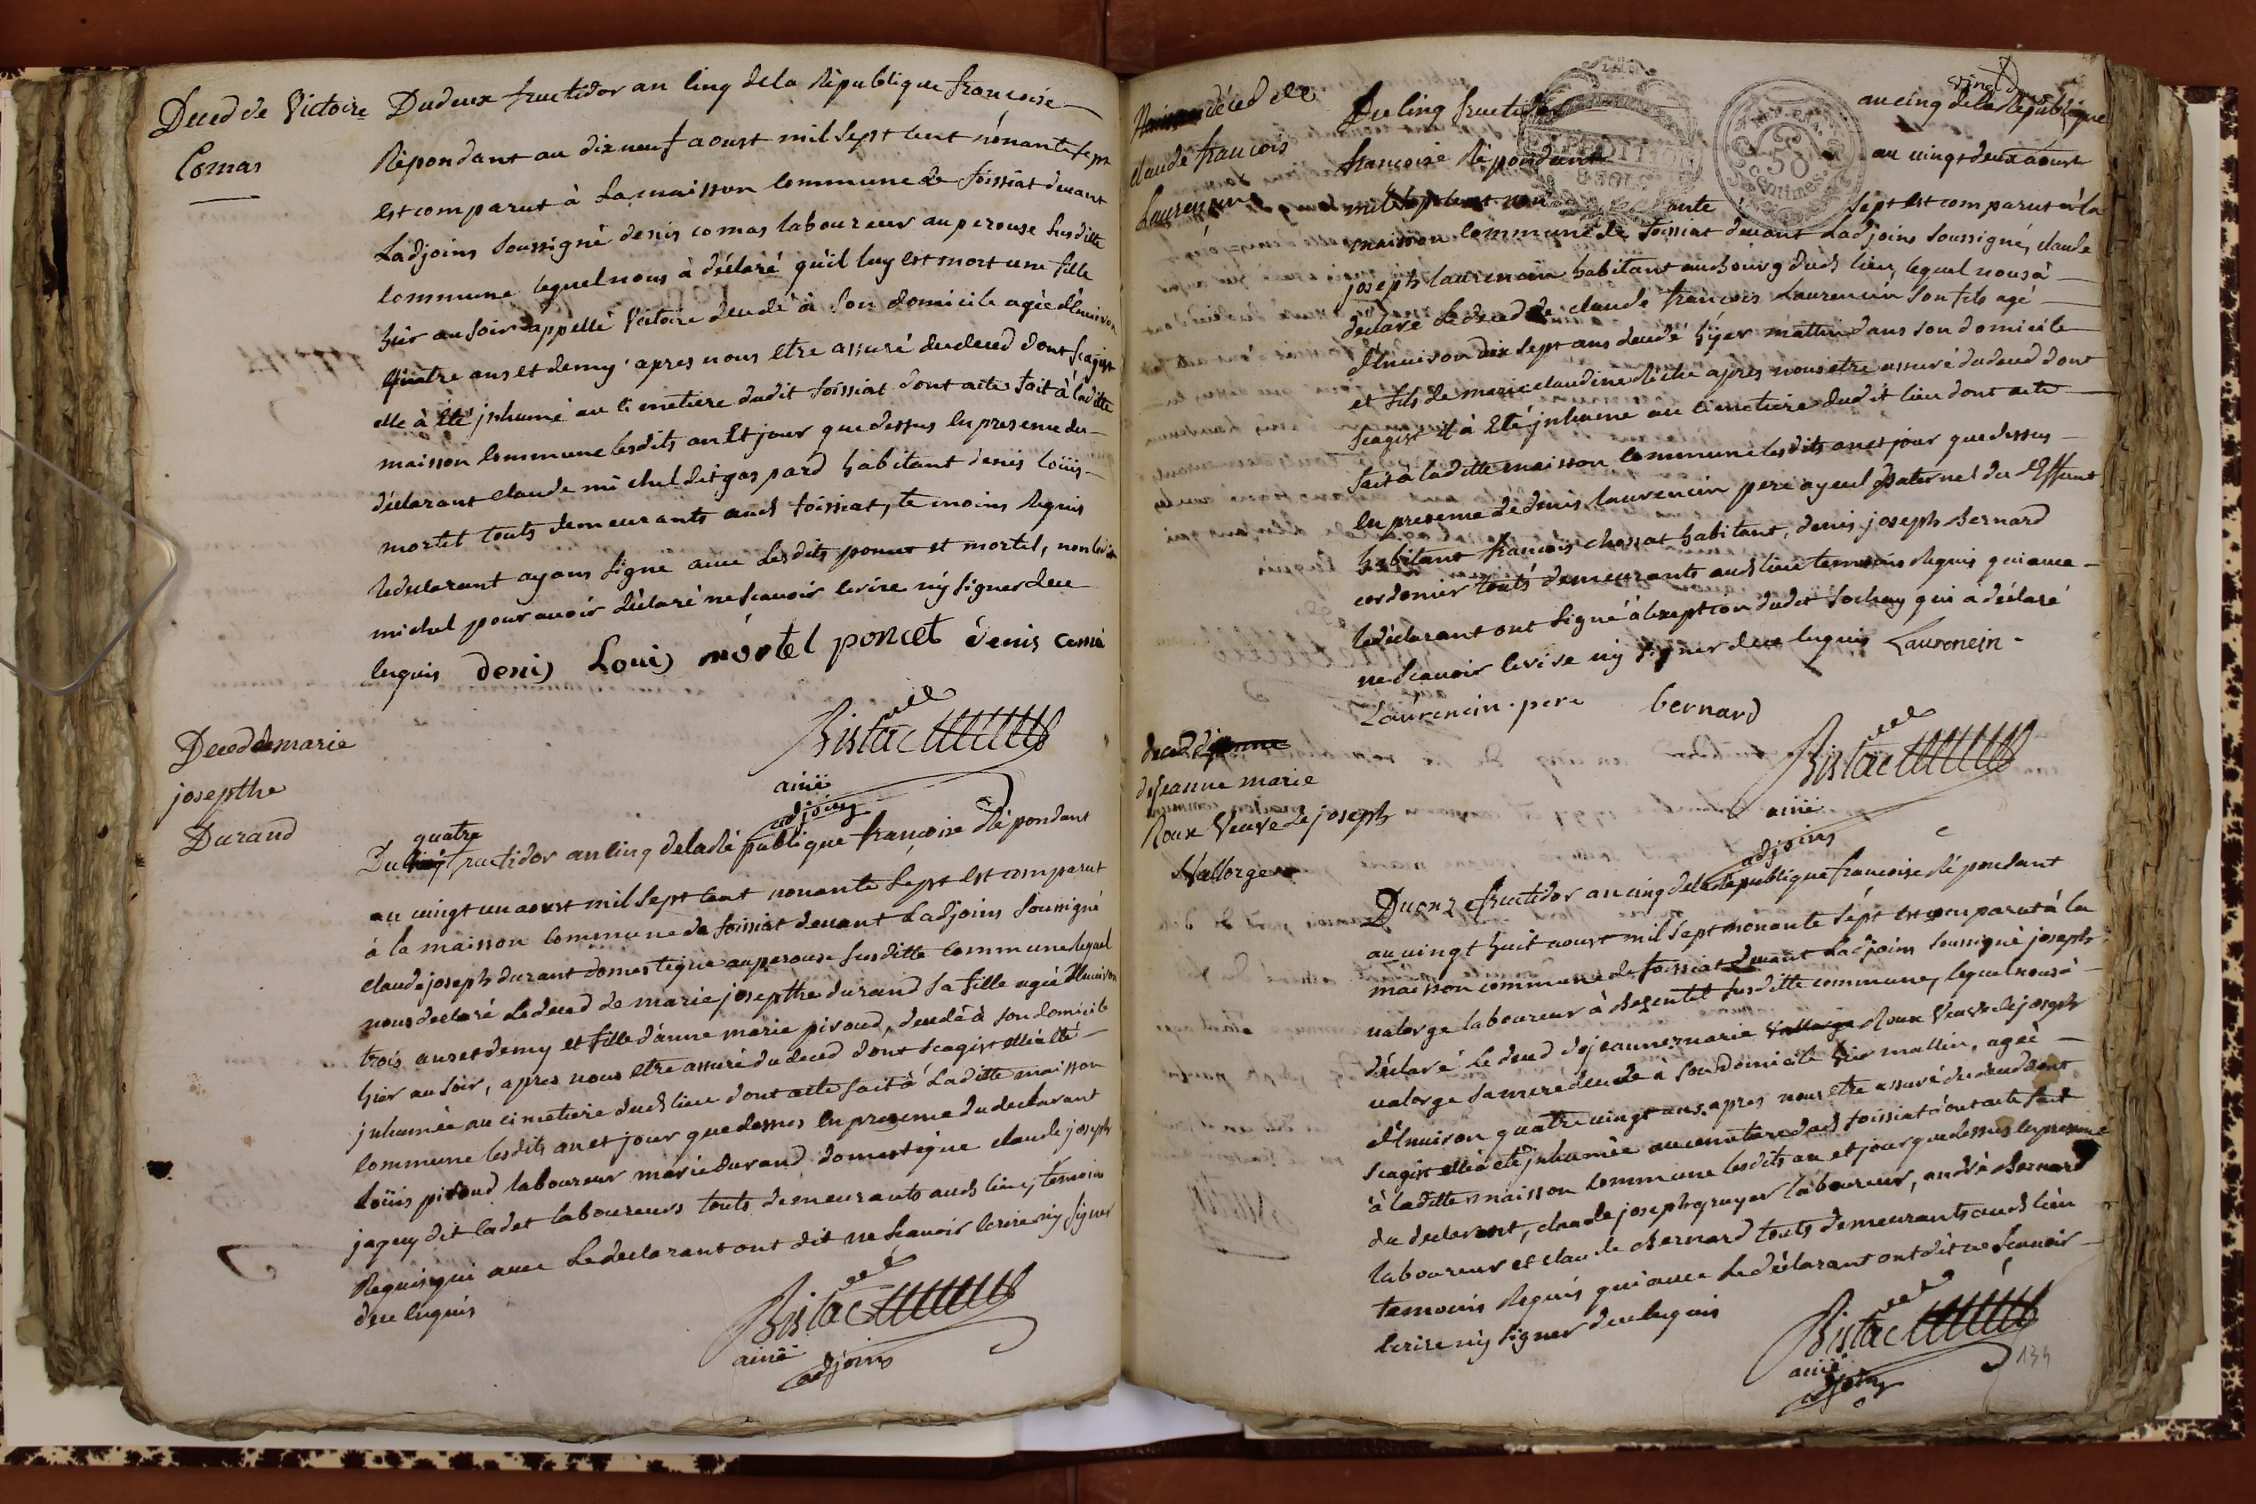 Deced de Victoire
Comas
Du deux fructidor an cinq de la Republique francoise
Répondant au dix neuf aoust mil sept cent nonante sept
est comparut à la maisson commune de foissiat devant
Ladjoins soussigné denis comas laboureur au perouse susditte
commune lequel nous à déclaré qu'il luy est mort une fille
hier au soir appellé Victoire deudé à son domicile agée d'Enuiron
quatre ans et demy apres nous etre assuré du deced dont sagist
elle à été jnhumé au cimetiere dudit foissiat dont acte fait à laditte
maisson commune lesdits an Et jour que dessus En presence du
déclarant claude michel dit gaspard habitant denis loüis
mortel touts demeurants aud foissiat, temoins Requis
le declarant ayans signé avec lesdits poncet et mortel, non ledit
michel pour avoir déclaré ne scavoir ecrire nÿ signer deue
Enquis denis Louis mortel poncet denis comas
Bistac
ainé
adjoins
Deced de marie
josepthe
Durand
quatre
Du fructidor an cinq de la Ré publique francoise Ré pondant
au vingt un aoust mil sept cent nonante sept est comparut
à la maisson commune de foissiat devant Ladjoins soussigné
claude joseph durant domestique au perouse susditte commune lequel
nous declaré Le deced de marie josepthe durand sa fille agée d'Enuiron
trois ans et demy et fille d'anne marie piroud, deudé à son domicile
hier au soir, apres nous etre assuré du deced dont sagist elle à été
jnhumée au cimetiere dud lieu dont acte fait à Laditte maisson
commune lesdits an et jour que dessus En presence du declarant
Loüis piroud laboureur marie durand domestique claude joseph
jaquy dit cadet laboureurs touts demeurants aud lieu, temoins
Requis qui avec Le declarant ont dit ne scavoir ecrire nÿ signer
deue Enquis
Bistac
ainé
adjoins
deced de
claude francois
Laurencin
Du cinq fructidor an cinq de la Republique
francoise Ré pondant au vingt deux aoust
mil sept cent nonante sept est comparut à la
maisson commune de foissiat devant Ladjoins soussigné, claude
joseph laurencin habitant au bourg dud lieu, lequel nous à
declaré Le deced de claude françois Laurencin son fils agé
d'Enuiron dix sept ans deudé hÿer mattin dans son domicile
et fils de marie claudine apres nous etre assuré du deced dont
sagist il à Eté jnhumé au cimetiere dudit lieu dont acte
fait à laditte maisson commune lesdits an et jour que dessus
En presence de denis laurencin pere ayeul paternel du deffunt
habitant francois chossat habitant, denis joseph Bernard
cordonier touts demeurants aud lieu temoins Requis qui avec
le déclarant ont signé à lexeption dudit qui a déclaré
ne scavoir ecrire nÿ signer deue Enquis Laurencin
Laurencin pere bernard
Bistac
ainé
adjoins
deced
de jeanne marie
Roux Veuve de joseph
Vallorge
Du onze fructidor an cinq de la Republique francoise Ré pondant
au vingt huit aoust mil sept nonante sept est comparut à la
maisson commune de foissiat devant Ladjoins soussigné joseph
valorge laboureur à susditte commune, lequel nous à
déclaré Le deced de jeanne marie Roux Veuve de joseph
valorge sa mere deudé à son domicile hier mattin, agée
d'Enuiron quatre vingt ans, apres nous etre assuré du deced dont
sagist elle à eté jnhumée au cimetiere dud foissiat dont acte fait
à laditte maisson commune lesdits an et jour que dessus En presence
du declarant, claude joseph gruyer laboureur, andré Bernard
laboureur et claude Bernard touts demeurants aud lieu
temoins Requis qui avec Le déclarant ont dit ne scavoir
ecrire nÿ signer deue Enquis
Bistac
ainé
134